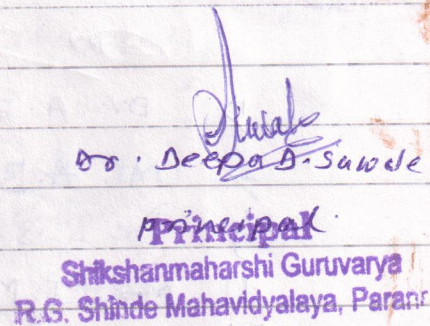 Dr. Deepa D. Sawale
principal.
Principal
Shikshanmaharshi Guruvarya
R.G. Shinde Mahavidyalaya, Paran